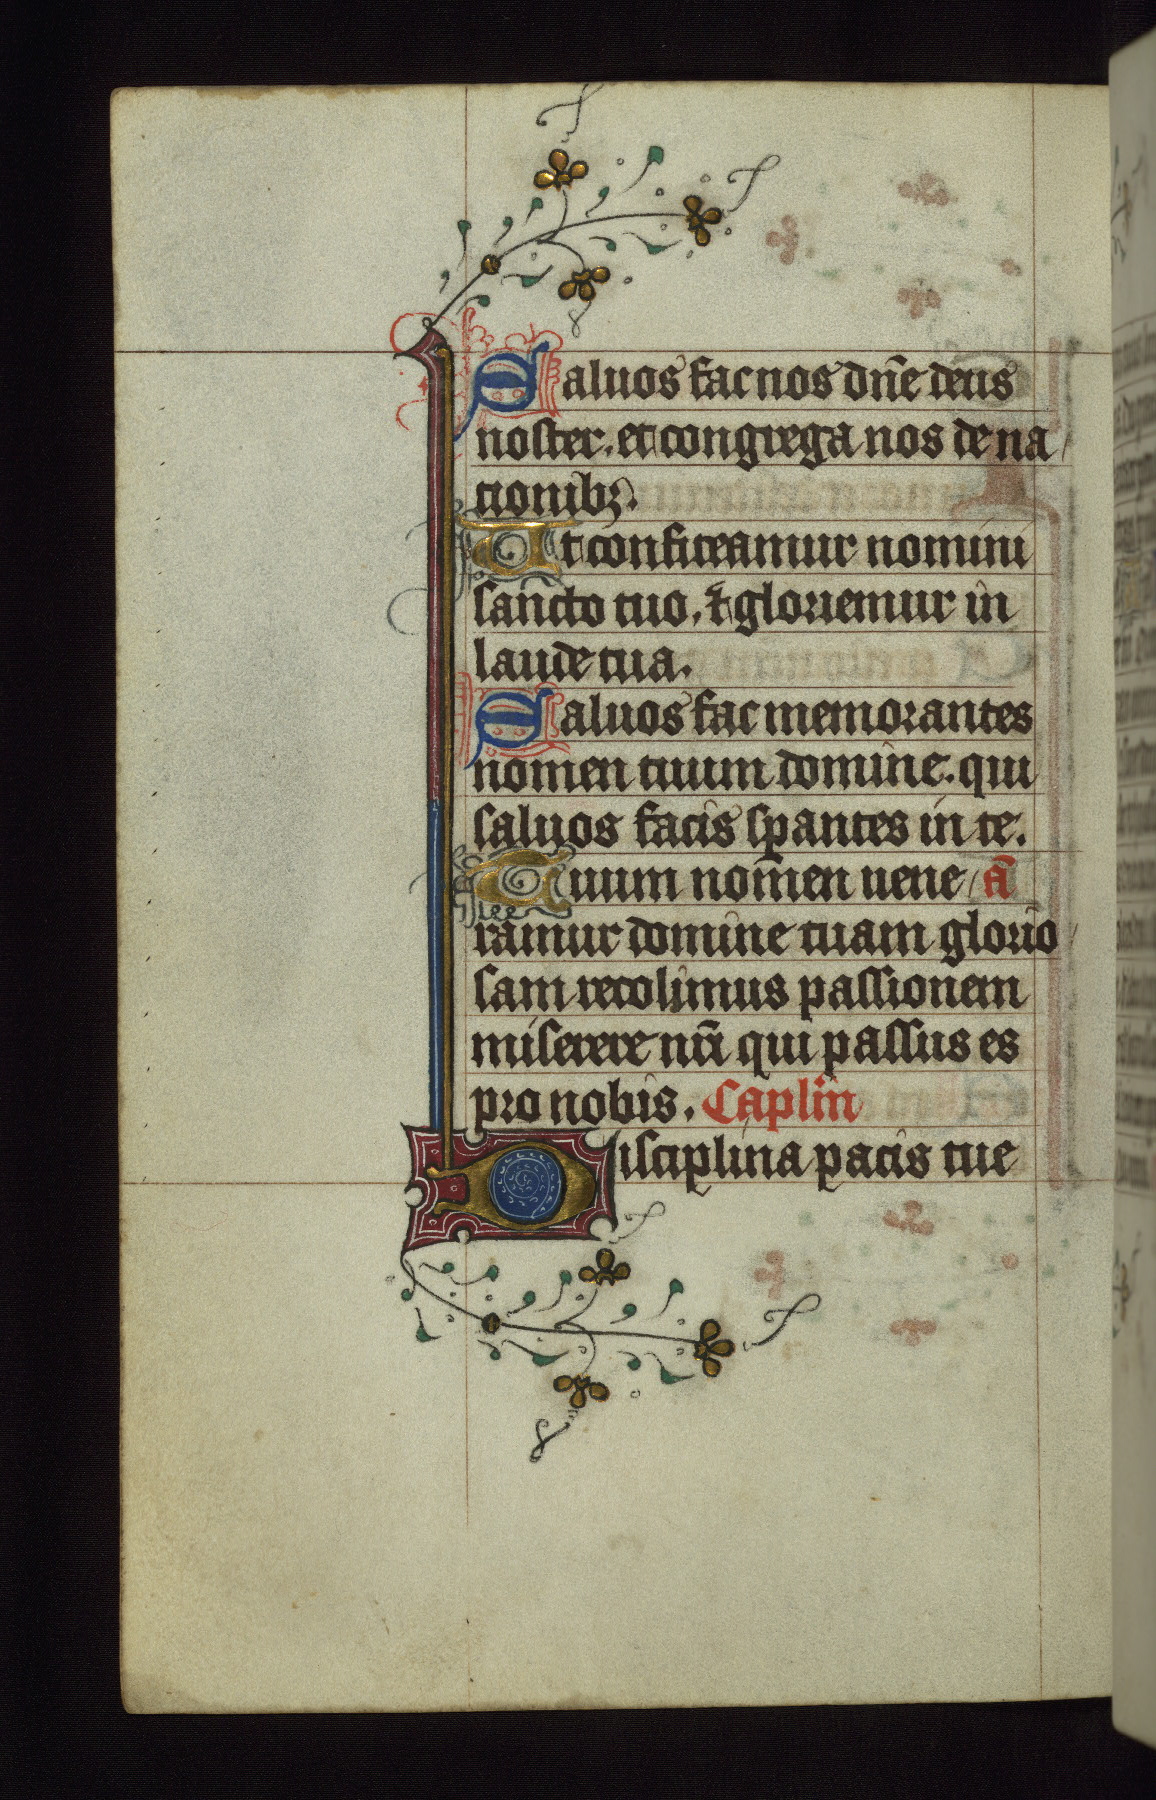 Saluos fac nos dn̄e deus
noster. et congrega nos de na
tionibꝫ.
Ut confiteamur nomini
sancto tuo. ⁊ gloriemur in
laude tua.
Saluos fac memorantes
nomen tuum domine. qui
saluos facis sꝑantes in te.
Tuum nomen uene / ā
ramur domine tuam glorio
sam recolimus passionem
miserere nr̄i qui passus es
pro nobis. Caplm̄
Disciplina pacis tue